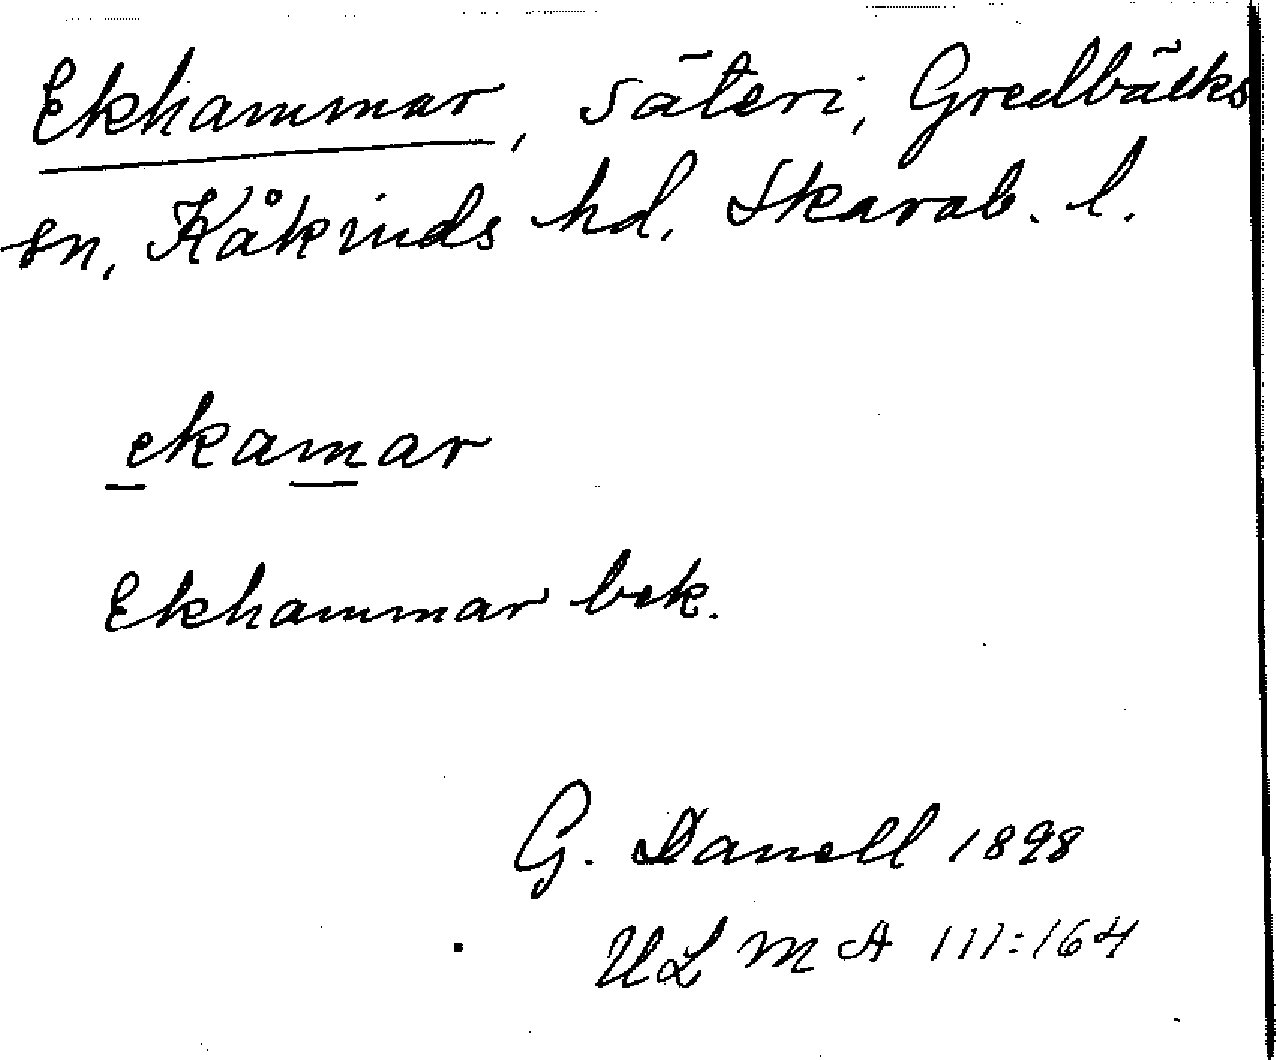 Ekhammar, säteri, Gredbäcks
sn, Kåkinds hd, Skarab. l.
ekamar
Ekhammar bek.
G. Danell 1898
ULMA 111:164